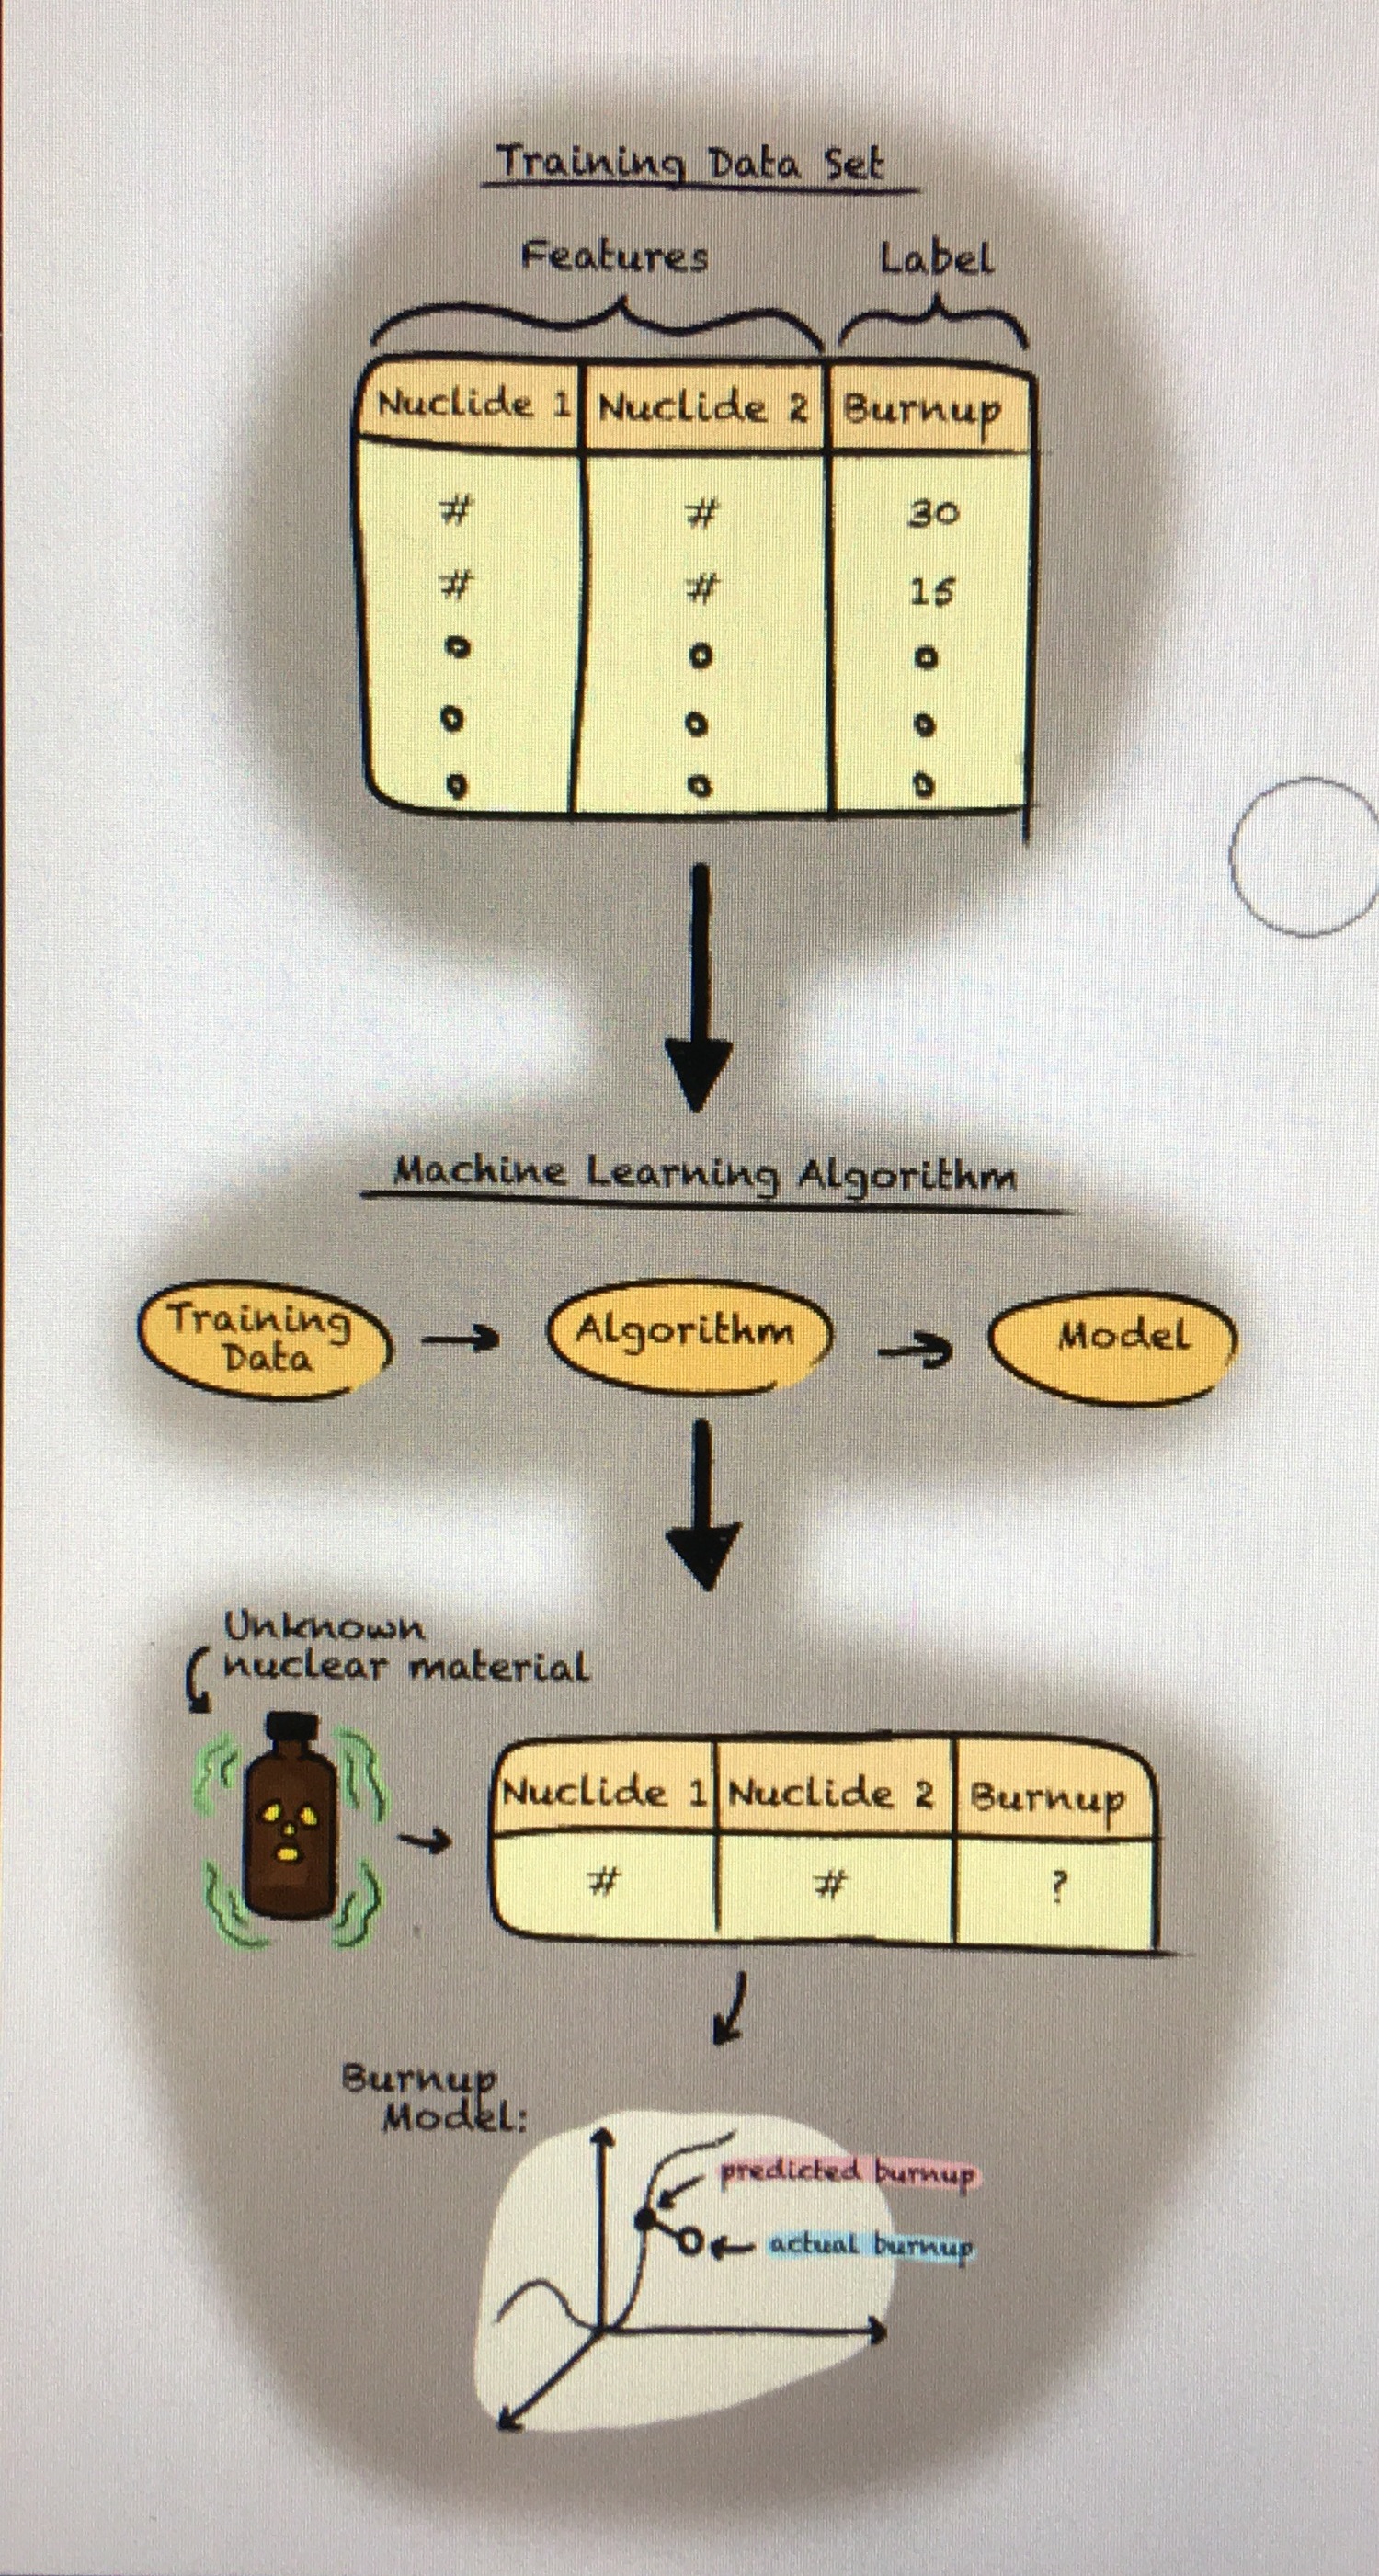 Training Data Set
Features Label
Nuclide 1 Nuclide 2 Burnup
# # 30
# # 15
Machine Learning Algorithm
Training
Data
Algorithm
Model
Unknown
nuclear material
Nuclide 1 Nuclide 2 Burnup
# # ?
Burnup
Model:
predicted burnup
actual burnup